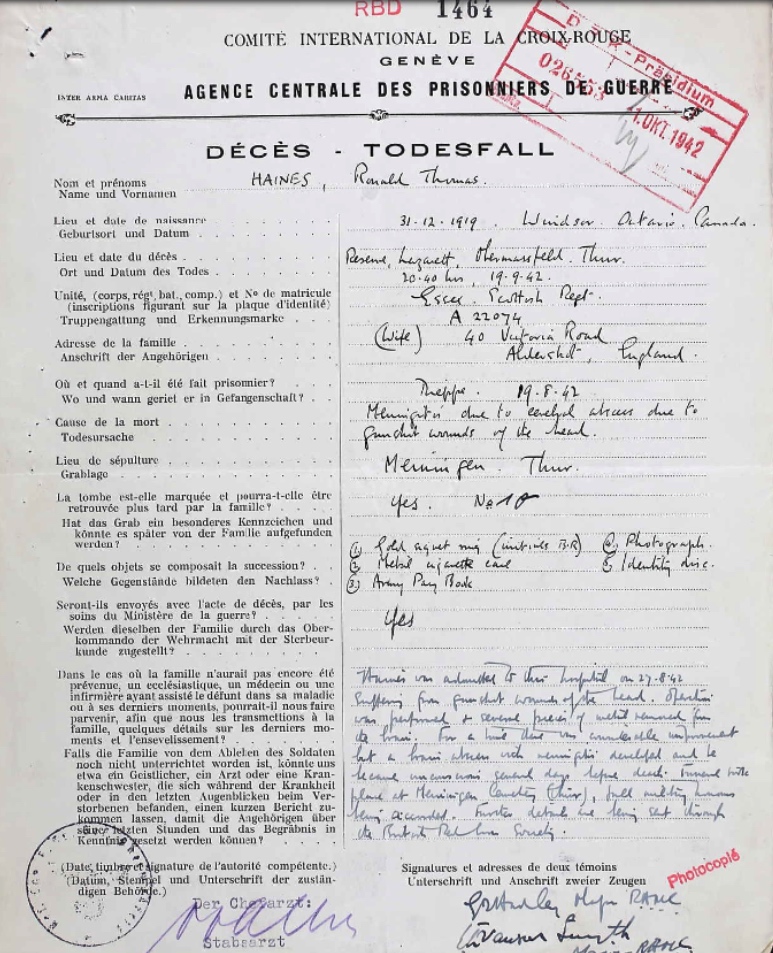 RBD 1464
COMITÉ INTERNATIONAL DE LA CROIX-ROUGE
GENÈVE
INTER ARMA CARITAS
AGENCE CENTRALE DES PRISONNIERS DE GUERRE
D R K - Präsidium
21.OKT.1942
DÉCÈS - TODESFALL
Nom et prénoms
Name und Vornamen
HAINES, Ronald Thomas.
Lieu et date de naissance
Geburtsort und Datum
31-12-1919. Windsor. Ontario. Canada.
Lieu et date du décès
Ort und Datum des Todes
Reserve, Lazarett, Obermassfeld. Thur.
20.40 hrs, 19-9-42.
Unité, (corps, régt, bat., comp.) et No de matricule
(inscriptions figurant sur la plaque d'identité)
Truppengattung und Erkennungsmarke
Essex Scottish Regt.
A 22074
Adresse de la famille
Anschrift der Angehörigen
(Wife) 40 Victoria Road
Aldershot, England.
Où et quand a-t-il été fait prisonnier?
Wo und wann geriet er in Gefangenschaft?
Dieppe. 19.8.42
Cause de la mort
Todesursache
Meningitis due to cerebral abscess due to
gunshot wounds of the head.
Lieu de sépulture
Grablage
Meiningen. Thur.
La tombe est-elle marquée et pourra-t-elle être
retrouvée plus tard par la famille?
Hat das Grab ein besonderes Kennzeichen und
könnte es später von der Familie aufgefunden
werden?
Yes. No 18
De quels objets se composait la succession?
Welche Gegenstände bildeten den Nachlass?
(1) Gold signet ring (initials B.R)
(2) Metal cigarette case
(3) Army Pay Book
Photograph.
Identity disc.
Seront-ils envoyés avec l'acte de décès, par les
soins du Ministère de la guerre?
Werden dieselben der Familie durch das Ober-
kommando der Wehrmacht mit der Sterbeur-
kunde zugestellt?
Yes
Dans le cas où la famille n'aurait pas encore été
prévenue, un ecclésiastique, un médecin ou une
infirmière ayant assisté le défunt dans sa maladie
ou à ses derniers moments, pourrait-il nous faire
parvenir, afin que nous les transmettions à la
famille, quelques détails sur les derniers mo-
ments et l'ensevelissement?
Falls die Familie von dem Ableben des Soldaten
noch nicht unterrichtet worden ist, könnte uns
etwa ein Geistlicher, ein Arzt oder eine Kran-
kenschwester, die sich während der Krankheit
oder in den letzten Augenblicken beim Ver-
storbenen befanden, einen kurzen Bericht zu-
kommen lassen, damit die Angehörigen über
seine letzten Stunden und das Begräbnis in
Kenntnis gesetzt werden können?
Haines was admitted to this hospital on 27-8-42
suffering from gunshot wounds of the head. Operation
was performed & several pieces of metal removed from
the brain. For a time there was considerable improvement
but a brain abscess with meningitis developed and he
became unconscious several days before death. Funeral took
place at Meiningen Cemetery (Thur), full military honours
being accorded. Further details are being sent through
the British Red Cross Society.
(Date, timbre et signature de l'autorité compétente.)
(Datum, Stempel und Unterschrift der zustän-
digen Behörde.)
Der Chefarzt:
Stabsarzt
Signatures et adresses de deux témoins
Unterschrift und Anschrift zweier Zeugen
Photocopié
Major RAMC
RAMC